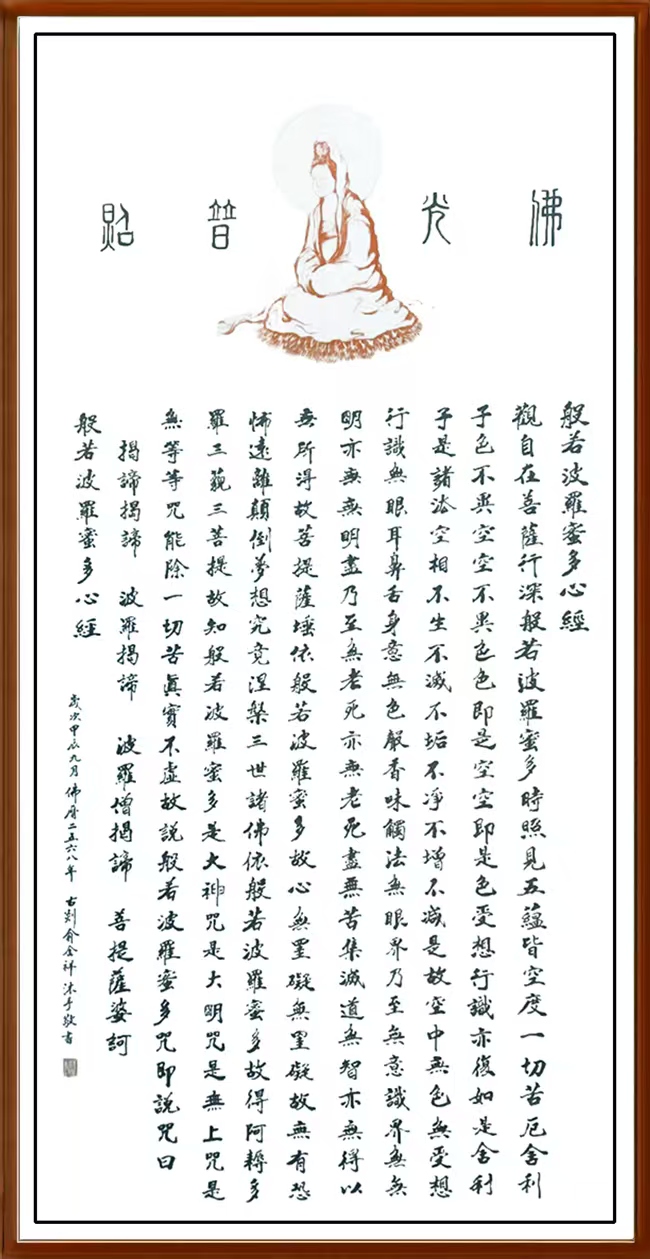 佛光普照
般若波羅蜜多心經
觀自在菩薩行深般若波羅蜜多時照見五蘊皆空度一切苦厄舍利
子色不異空空不異色色即是空空即是色受想行識亦復如是舍利
子是諸法空相不生不滅不垢不淨不增不減是故空中無色無受想
行識無眼耳鼻舌身意無色聲香味觸法無眼界乃至無意識界無無
明亦無無明盡乃至無老死亦無老死盡無苦集滅道無智亦無得以
無所得故菩提薩埵依般若波羅蜜多故心無罣礙無罣礙故無有恐
怖遠離顛倒夢想究竟涅槃三世諸佛依般若波羅蜜多故得阿耨多
羅三藐三菩提故知般若波羅蜜多是大神咒是大明咒是無上咒是
無等等咒能除一切苦眞實不虛故說般若波羅蜜多咒即說咒曰
揭諦揭諦 波羅揭諦 波羅僧揭諦 菩提薩婆訶
般若波羅蜜多心經
歲次甲辰九月佛曆二五六八年 古剡俞全祥沐手敬書